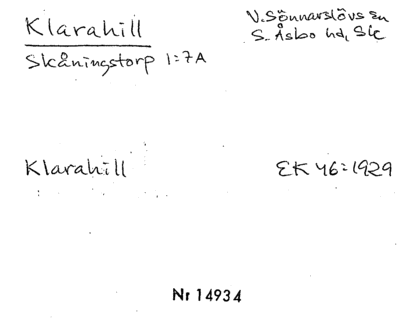 Klarahill
V. Sönnarslövs sn
Skåningstorp 1:7A
S. Åsbo hd, Sk
Klarahill
EK 46:1929
Nr 14934